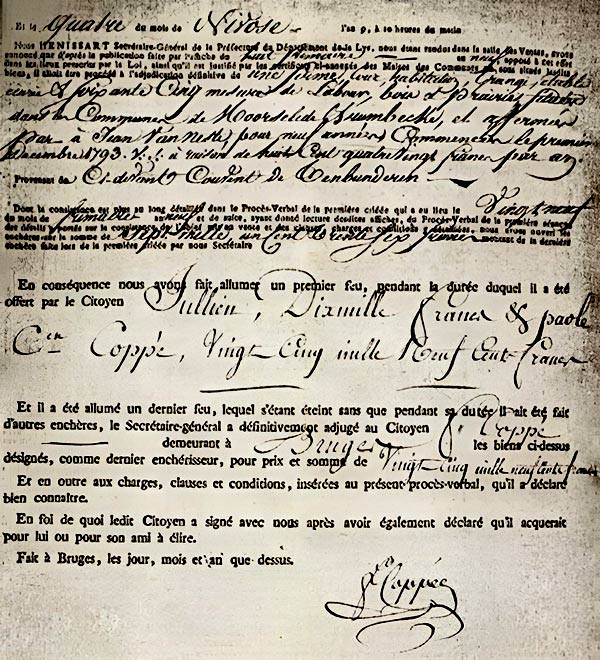 Et le Quatre du mois de Nivôse l'an 9, à 10 heures du matin
Nous HENISSART Secrétaire-Général de la Préfecture du Département de la Lys, nous étant rendus dans la salle des Ventes, avons
annoncé que d'après la publication faite par l'affiche du huit frimaire an neuf, apposé à cet effet
dans les lieux prescrits par la Loi, ainsi qu'il est justifié par les certificats ci-annexés des Maires des Communes où sont situés lesdits
biens, il alloit être procédé à l'adjudication définitive de une ferme, leur habitation, Grange, étable
écurie & soixante Cinq mesures de Labour, bois & prairie située
dans la Commune de Moorselede Brumbeche, et affermée
par à Jean Vanneste pour neuf années Commencer le premier
Decembre 1793. V.S. à raison de huit Cent quatre Vingt francs par an
Provenant du Ci-devant Couvent de Œenbunderen
Dont la consistance est plus au long détaillée dans le Procès-Verbal de la première criée qui a eu lieu le Vingt neuf
du mois de frimaire neuf et de suite, ayant donné lecture desdites affiches, du Procès-Verbal de la première séance
des détails portés sur la consistance de l'objet mis en vente et des clauses, charges et conditions y détaillées, nous avons ouvert les
enchères sur la somme de Sept mille un Cent trente six francs montant de la dernière
enchère faite lors de la première criée par nous Secrétaire
En conséquence nous avons fait allumer un premier feu, pendant la durée duquel il a été
offert par le Citoyen Jullien, Dixmille francs & par le
Cen Coppé, Vingt Cinq mille Neuf Cent francs
Et il a été allumé un dernier feu, lequel s'étant éteint sans que pendant sa dutée il ait été fait
d'autres enchères, le Secrétaire-général a définitivement adjugé au Citoyen f. Coppé
demeurant à Bruges les biens ci-dessus
désignés, comme dernier enchérisseur, pour prix et somme de Vingt Cinq mille neuf cents francs
Et en outre aux charges, clauses et conditions, insérées au présent procès-verbal, qu'il a déclaré
bien connaître.
En foi de quoi ledit Citoyen a signé avec nous après avoir également déclaré qu'il acquerait
pour lui ou pour son ami à élire.
Fait à Bruges, les jour, mois et an que dessus.
Coppée